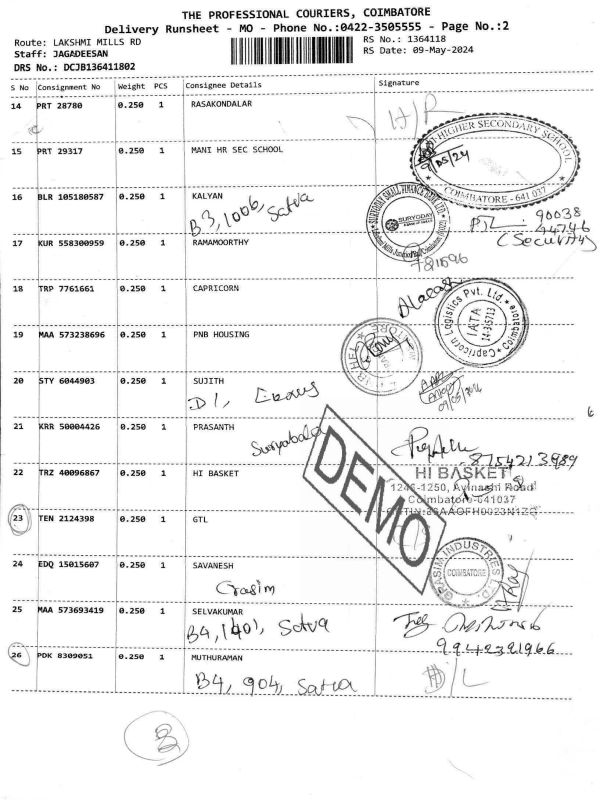 THE PROFESSIONAL COURIERS, COIMBATORE
Delivery Runsheet - MO - Phone No.:0422-3505555 - Page No.:2
Route: LAKSHMI MILLS RD
RS No.: 1364118
Staff: JAGADEESAN
RS Date: 09-May-2024
DRS No.: DCJB136411802
S No Consignment No Weight PCS Consignee Details Signature
14 PRT 28780 0.250 1 RASAKONDALAR
15 PRT 29317 0.250 1 MANI HR SEC SCHOOL
HIGHER SECONDARY SCHOOL
COIMBATORE - 641 037
16 BLR 105180587 0.250 1 KALYAN
B3, 1006, Satva
SURYODAY SMALL FINANCE BANK LTD.
SURYODAY
90038
(Security)
17 KUR 558300959 0.250 1 RAMAMOORTHY
18 TRP 7761661 0.250 1 CAPRICORN
Capricorn Logistics Pvt. Ltd.
Coimbatore
IATA
14-3-5713
19 MAA 573238696 0.250 1 PNB HOUSING
20 STY 6044903 0.250 1 SUJITH
D1,
21 KRR 50004426 0.250 1 PRASANTH
Suryabala
8754213989
22 TRZ 40096867 0.250 1 HI BASKET
HI BASKET
1246-1250, Avinashi Road
Coimbatore-641037
DEMO
23 TEN 2124398 0.250 1 GTL
24 EDQ 15015607 0.250 1 SAVANESH
Grasim
GRASIM INDUSTRIES LTD.
COIMBATORE
25 MAA 573693419 0.250 1 SELVAKUMAR
B4, 1401, Satva
9942391966
26 PDK 8309051 0.250 1 MUTHURAMAN
B4, 904, Satva
D/L